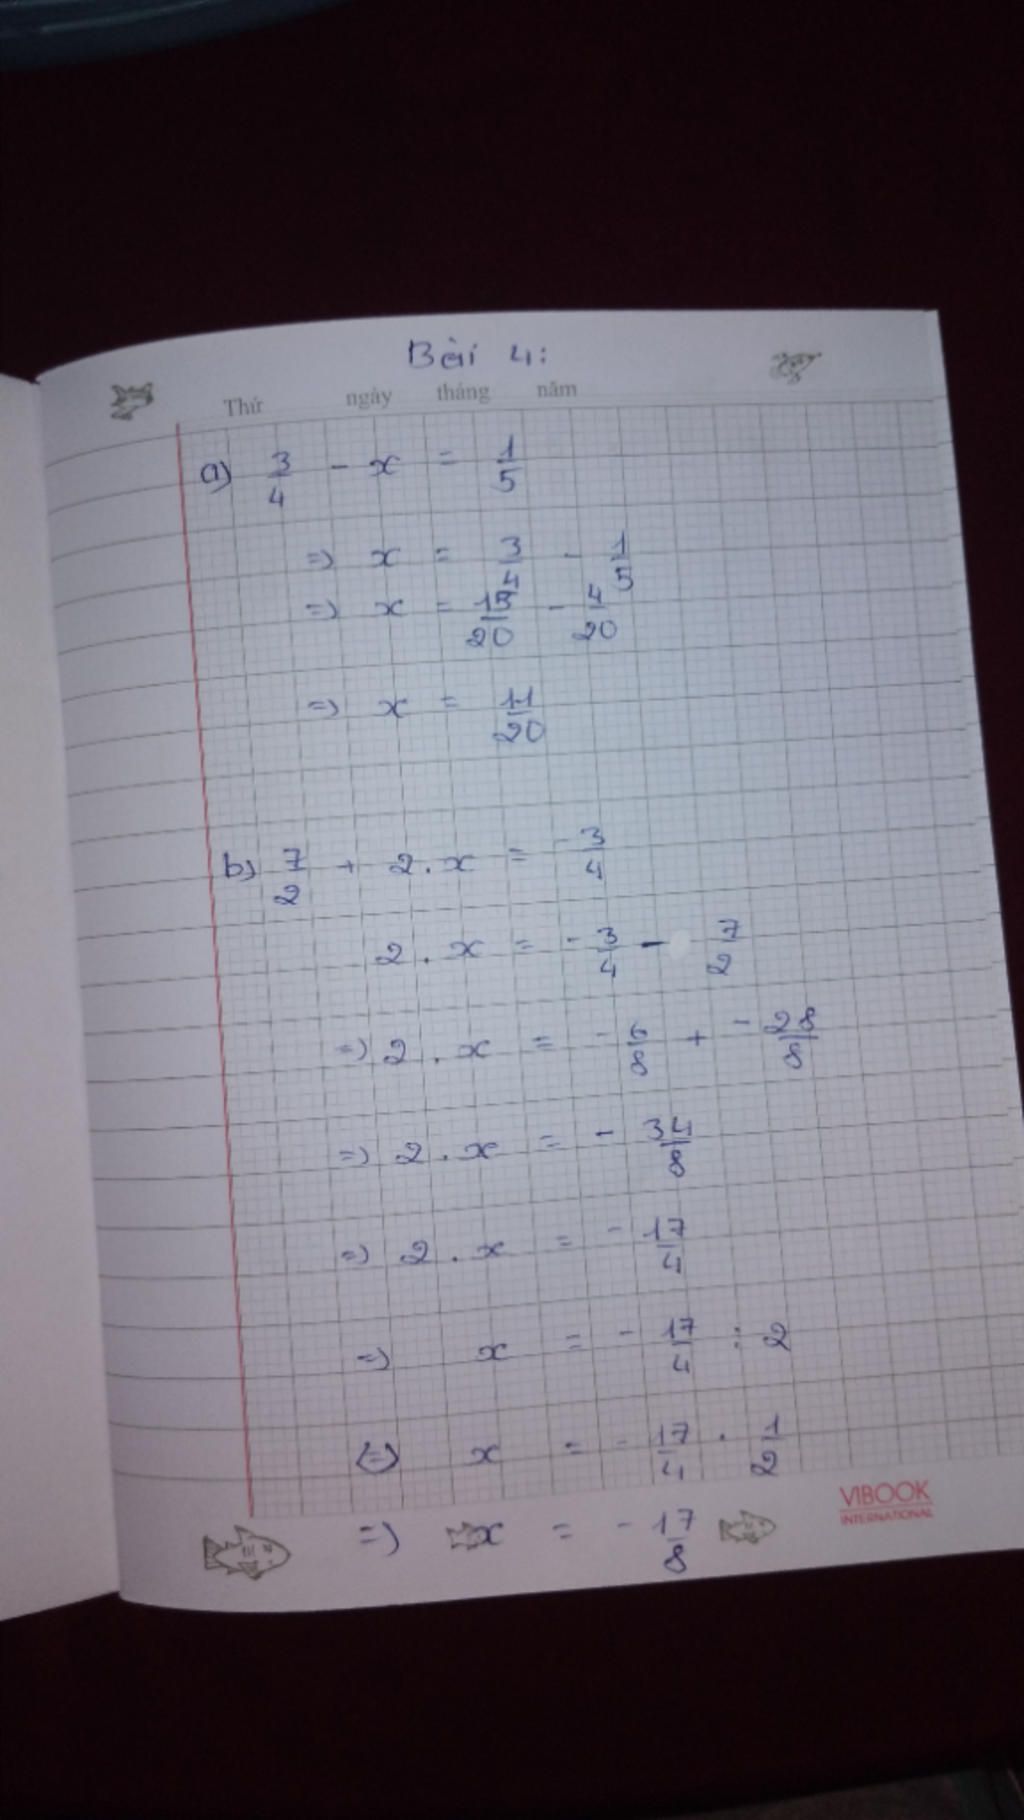 Bài 4:
Thứ ngày tháng năm
a) 3/4 - x = 1/5
=> x = 3/4 - 1/5
=> x = 15/20 - 4/20
=> x = 11/20
b) 7/2 + 2 . x = -3/4
2 . x = -3/4 - 7/2
=> 2 . x = -6/8 + -28/8
=> 2 . x = -34/8
=> 2 . x = -17/4
=> x = -17/4 : 2
<=> x = -17/4 . 1/2
=> x = -17/8
VIBOOK
INTERNATIONAL